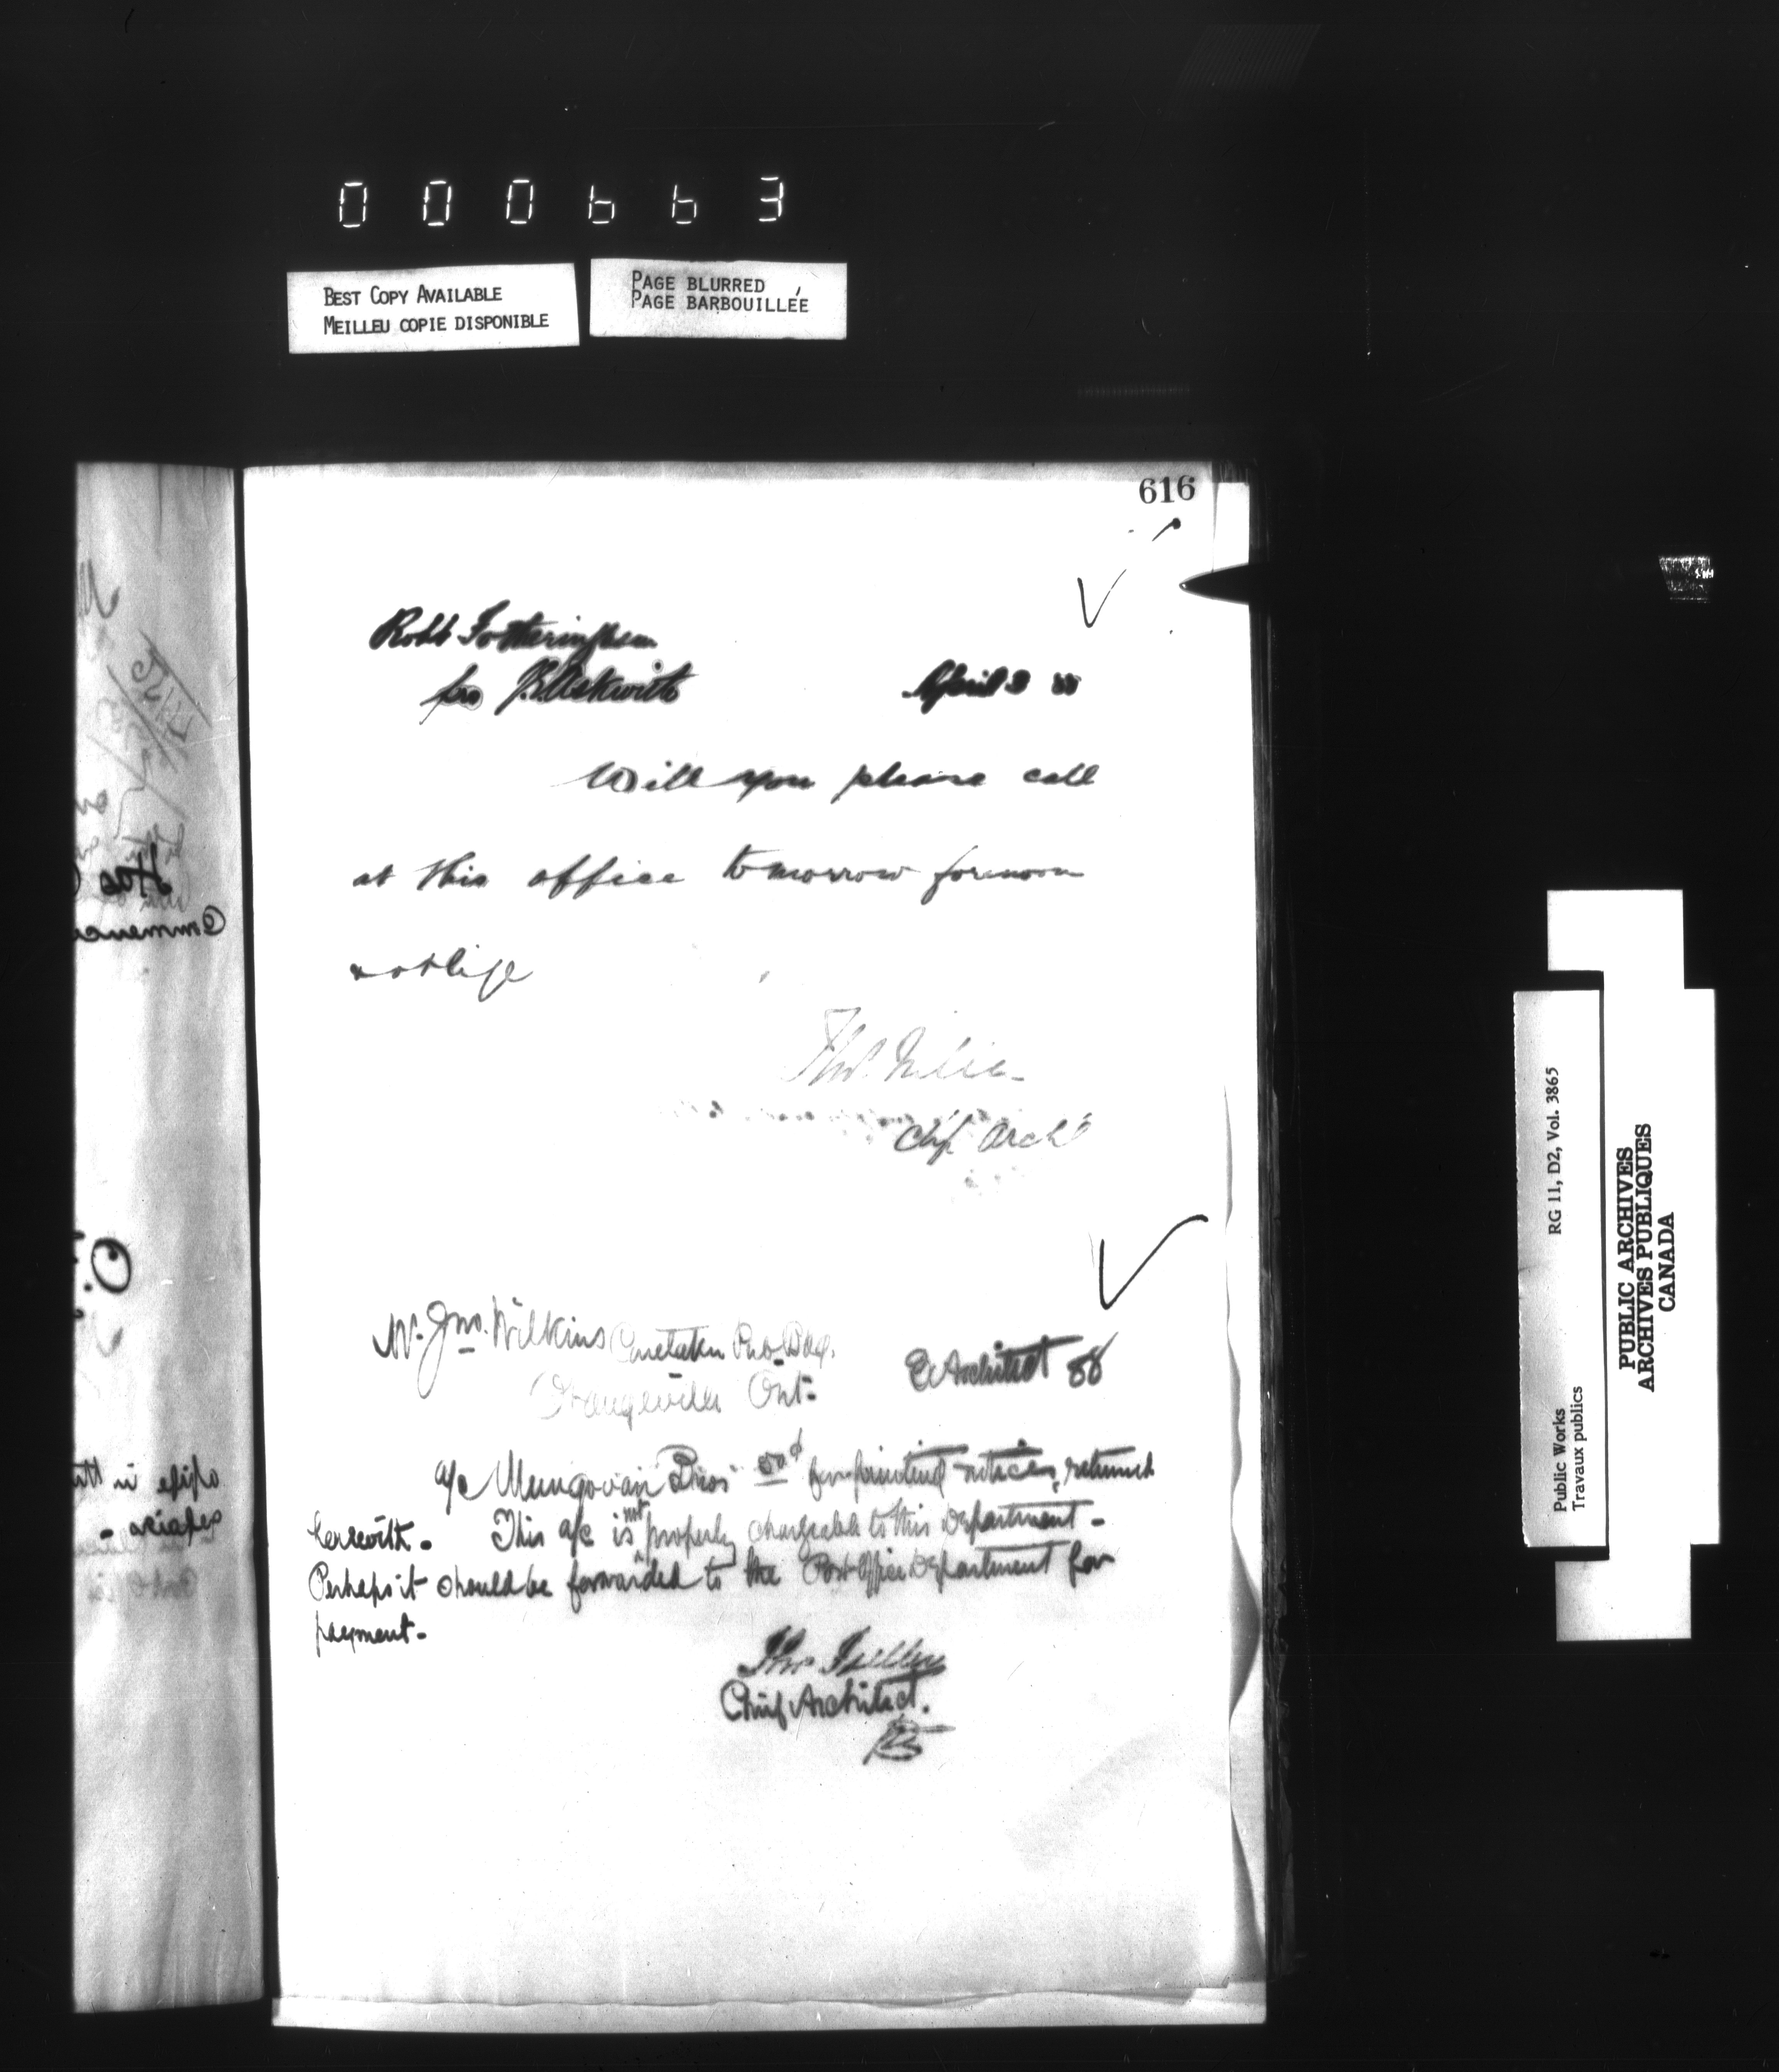 000663
BEST COPY AVAILABLE
MEILLEU COPIE DISPONIBLE
PAGE BLURRED
PAGE BARBOUILLÉE
616
Robt Fotheringham
for J.R. Askwith
April 3 88
Will you please call
at this office tomorrow forenoon
& oblige
Thos.
Chf. Archt
Mr. Jno. Wilkins Caretaker Pub. Bdg.
Orangeville Ont.
Architect 88
a/c Mungovan Bros for printing notices, returned
herewith. This a/c is not properly chargeable to this Department.
Perhaps it should be forwarded to the Post Office Department for
payment.
Thos Fuller
Chief Architect.
Public Works
Travaux publics
RG 11, D2, Vol. 3865
PUBLIC ARCHIVES
ARCHIVES PUBLIQUES
CANADA